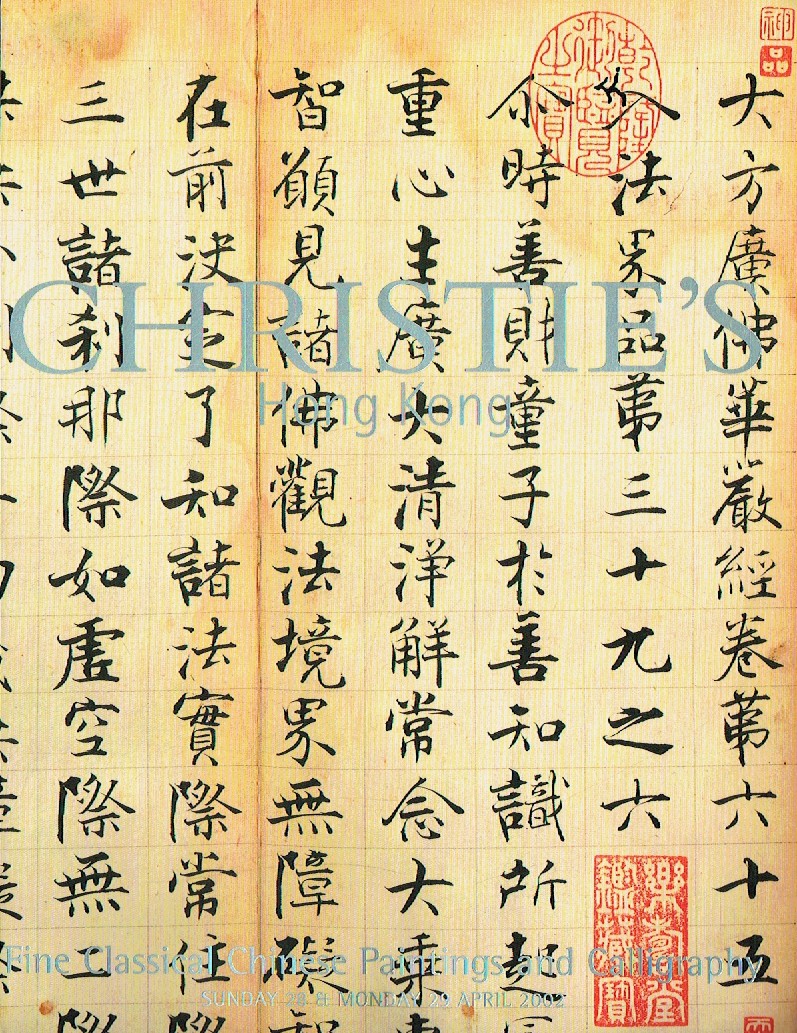 大方廣佛華嚴經卷第六十五
入法界品第三十九之六
尒時善財童子於善知識所起
重心生廣大清淨解常念大乘
智願見諸佛觀法境界無障礙智
在前決定了知諸法實際常住際
三世諸剎那際如虛空際無二際
神品
乾隆御覽之寶
樂壽堂鑑藏寶
CHRISTIE'S
Hong Kong
Fine Classical Chinese Paintings and Calligraphy
SUNDAY 28 & MONDAY 29 APRIL 2002